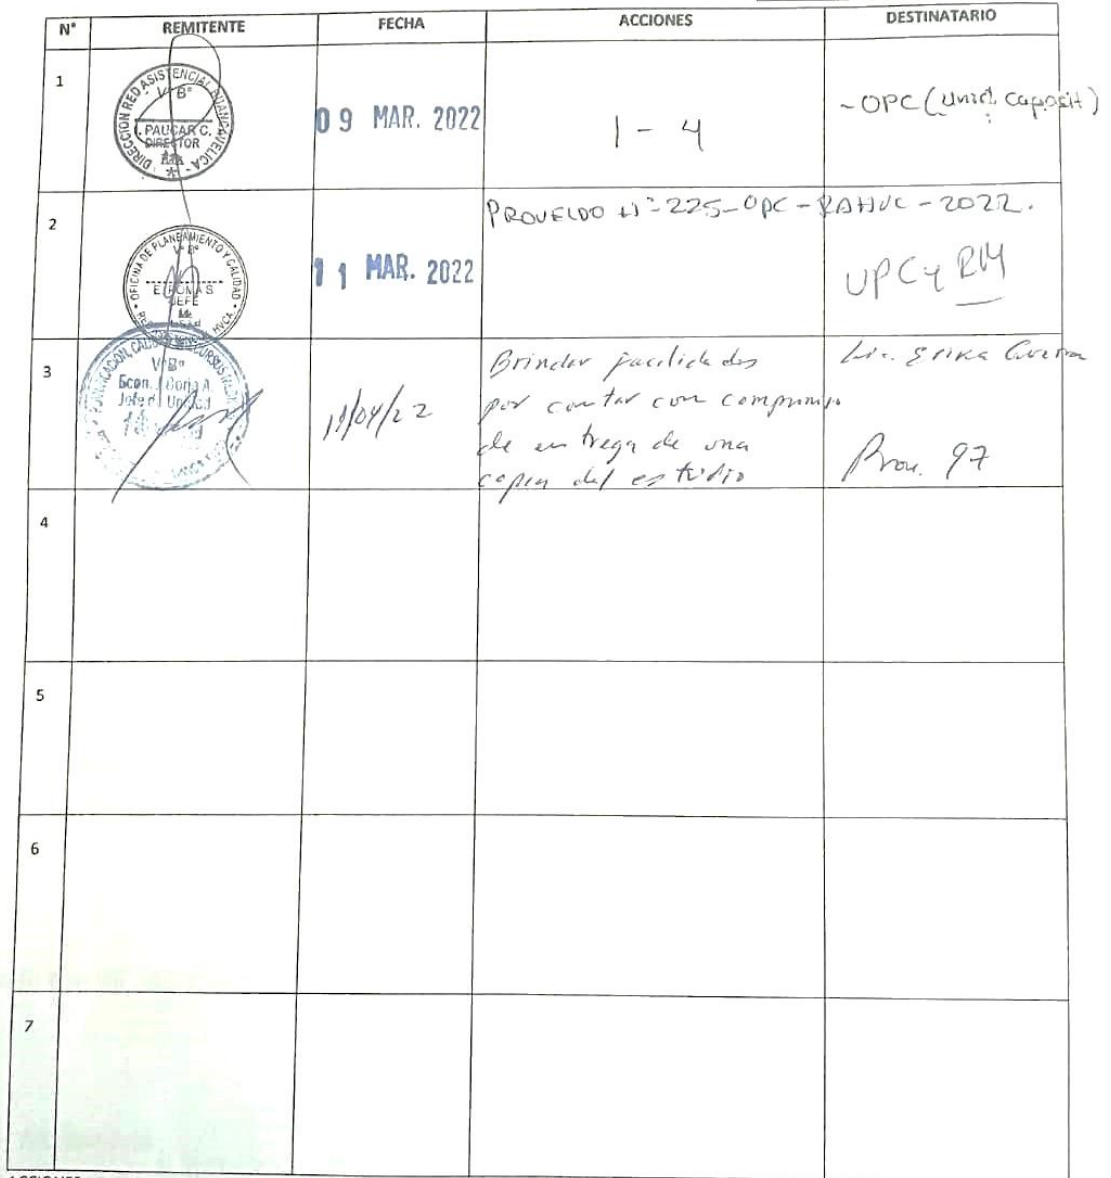 N° REMITENTE FECHA ACCIONES DESTINATARIO
1
DIRECCION RED ASISTENCIAL HUANCAVELICA
V° B°
I. PAUCAR C.
DIRECTOR
09 MAR. 2022
1 - 4
- OPC (Unid. Capacit)
2
OFICINA DE PLANEAMIENTO Y CALIDAD
V° B°
JEFE
HVCA
11 MAR. 2022
PROVEIDO N° 225-OPC-RAHVC-2022.
UPC y RM
3
V° B°
Econ. Borja A.
Jefe de Unidad
11/04/22
Brindar facilidades
por contar con compromiso
de entrega de una
copia del estudio
Lic. Erika
Prov. 97
4
5
6
7
ACCIONES